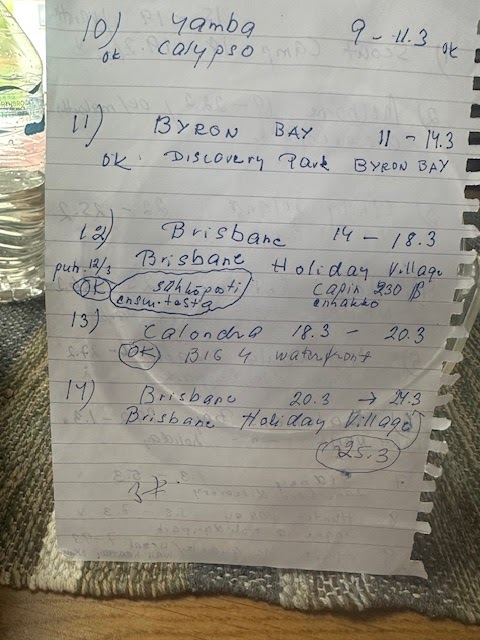 10) Yamba 9 - 11.3 ok
ok Calypso
11) BYRON BAY 11 - 14.3
OK. Discovery Park BYRON BAY
12) Brisbane 14 - 18.3
Brisbane Holiday Village
puh. 12/3
OK sähköposti cabin 230
ennakko
13) Calondra 18.3 - 20.3
OK BIG 4 waterfront
14) Brisbane 20.3 → 24.3
Brisbane Holiday Village
25.3